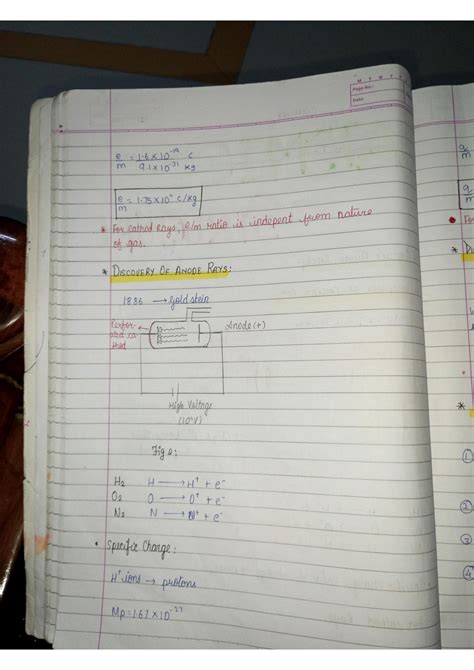 M T W T F
Page No.:
Date:
e/m = 1.6 × 10⁻¹⁹ C / 9.1 × 10⁻³¹ kg
e/m = 1.75 × 10¹¹ C/kg
* For Cathod Rays, e/m ratio is indepent from nature
of gas.
* DISCOVERY OF ANODE RAYS:
1886 → Goldstein
Perfor-
ated ca
thod
Anode(+)
High Voltage
(10⁴V)
Fig:
H₂ H → H⁺ + e⁻
O₂ O → O⁺ + e⁻
N₂ N → N⁺ + e⁻
• Specific Charge:
H⁺ ions → protons
Mp = 1.67 × 10⁻²⁷